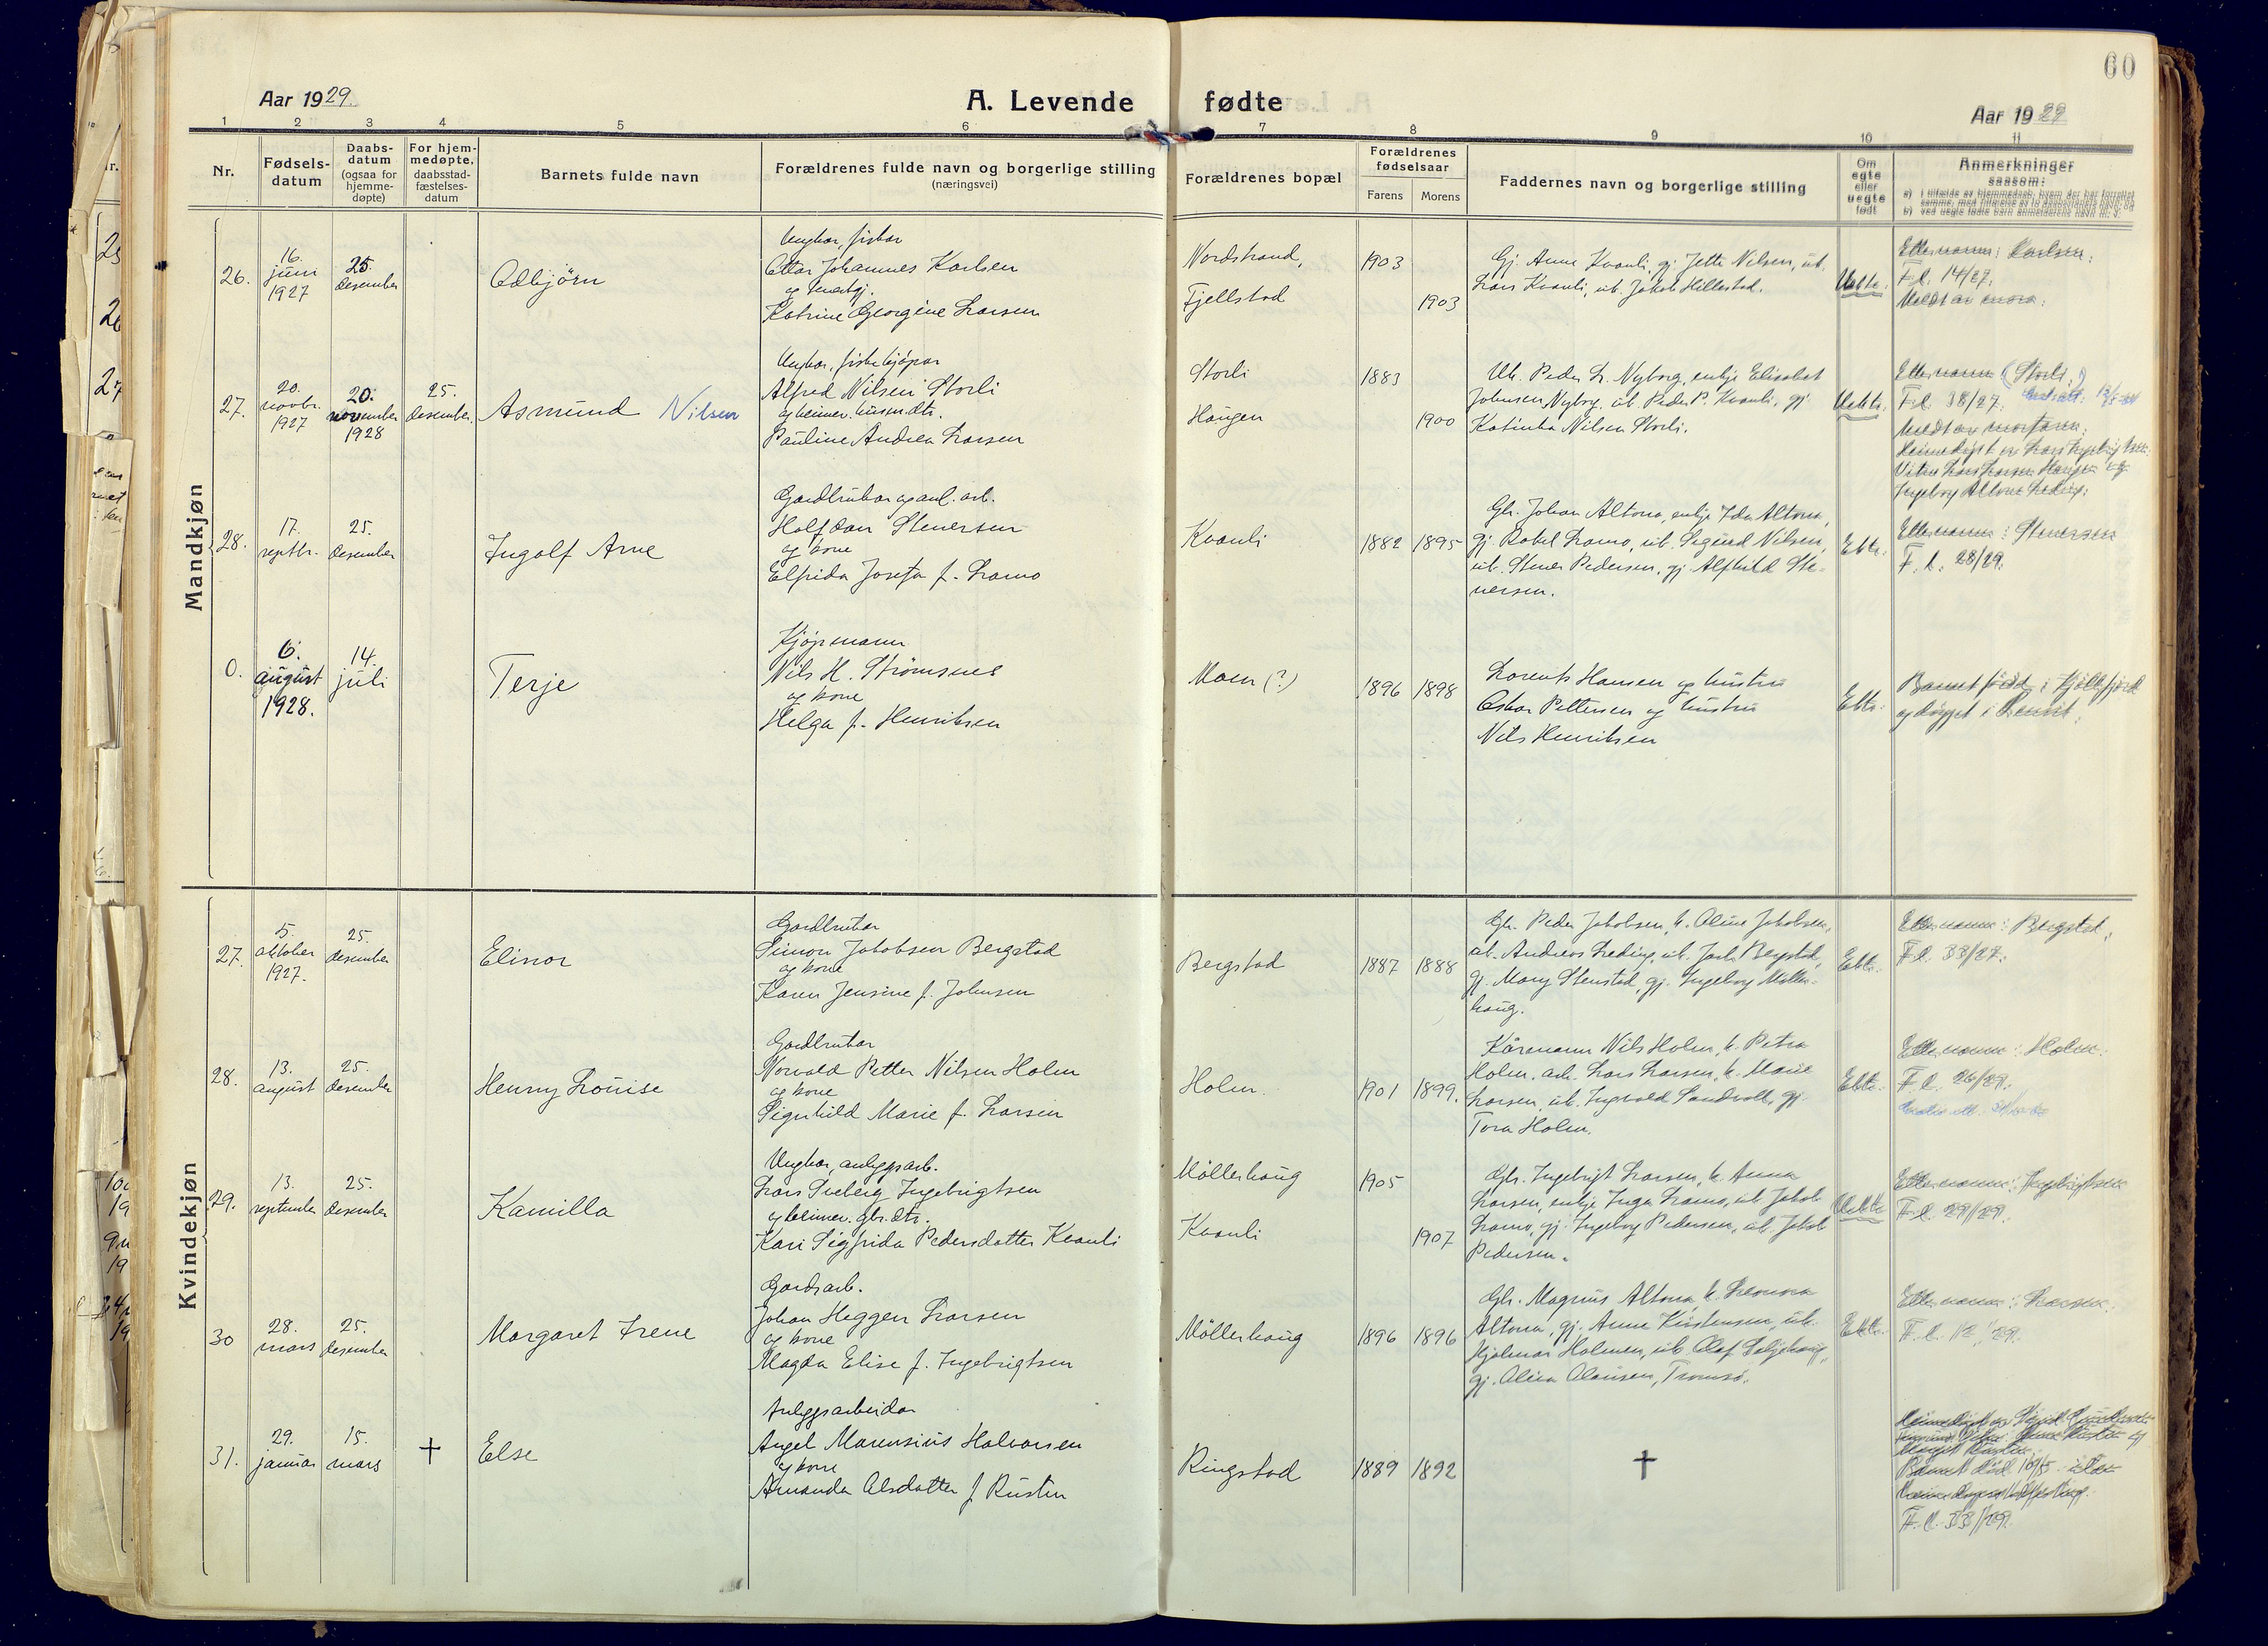 60
Aar 1929.
A. Levende fødte
Aar 1929
1 2 3 4 5 6 7 8 9 10 11
Nr.
Fødsels-
datum
Daabs-
datum
(ogsaa for
hjemme-
døpte)
For hjem-
medøpte,
daabsstad-
fæstelses-
datum
Barnets fulde navn
Forældrenes fulde navn og borgerlige stilling
(næringsvei)
Forældrenes bopæl
Forældrenes
fødselsaar
Farens Morens
Faddernes navn og borgerlige stilling
Om
egte
eller
uegte
født
Anmerkninger
saasom:
Mandkjøn
26.
16.
juni
1927
25.
desember
Odbjörn
Ungkar, fisker
Ottar Johannes Karlsen
og
Katrine Georgine Larsen
Nordstrand,
Fjellstad
1903
1903
Gj. Anna Kvanli, gj. Jette Nilsen, uk.
Lars Kvanli, uk. Jakob Hillestad.
Uekte.
Etternamn: Karlsen.
F.l. 14/27.
Meldt av mora.
27.
20.
novbr.
1927
20.
november
1928
25.
desember.
Asmund Nilsen
Ungkar, fiskekjøpar
Alfred Nilsen Storli
og heimev. husm.dtr.
Pauline Andrea Larsen
Storli
Haugen
1883
1900
Uk. Peder L. Nyborg, enkje Elisabet
Johnsen Nyborg, uk. Peder P. Kvanli, gj.
Katinka Nilsen Storli.
Uekte.
Etternamn (Storli.)
F.l. 38/27.
Meldt av morfaren.
28.
17.
septbr.
25.
desember
Ingolf Arne
Gardbrukar og anl. arb.
Halfdan Stenersen
og kone
Elfrida Josefa f. Lamo
Kvanli
1882 1895
Gbr. Johan Altona, enkje Ida Altona,
gj. Rakel Lamo, uk. Sigurd Nilsen,
uk. Stener Pedersen, gj. Alfhild Ste-
nersen.
Ekte.
Etternamn: Stenersen
F.l. 28/29.
0.
6.
august
1928.
14.
juli
Terje
Kjøpmann
Nils H. Strømsnes
og kone
Helga f. Henriksen
Moen (?)
1896 1898
Lorents Hansen og hustru
Oskar Pettersen og hustru
Nils Henriksen
Ekte.
Barnet født i Kjøllefjord
og døypt i Lenvik.
Kvindekjøn
27.
5.
oktober
1927.
25.
desember
Elinor
Gardbrukar
Simon Jakobsen Bergstad
og kone
Karen Jensine f. Johnsen
Bergstad
1887 1888
Gbr. Peder Jakobsen, k. Oline Jakobsen,
uk. Andreas Leding, uk. Jark Bergstad,
gj. Mary Stenstad, gj. Ingeborg Møller-
haug.
Ekte.
Etternamn: Bergstad.
F.l. 33/27.
28.
13.
august
25.
desember
Henny Louise
Gardbrukar
Norvald Petter Nilsen Holm
og kone
Signhild Marie f. Larsen
Holm.
1901 1899.
Kårmann Nils Holm, k. Petra
Holm, arb. Lars Larsen, k. Marie
Larsen, uk. Ingvald Sandvoll, gj.
Tora Holm.
Ekte.
Etternamn: Holm.
F.l. 26/29.
29.
13.
september
25.
desember
Kamilla
Ungkar, anleggsarb.
Lars Ingebrigtsen
og heimev. gbr. dtr.
Kari Sigfrida Pedersdatter Kvanli
Møllerhaug
Kvanli
1905
1907
Gbr. Ingebrigt Larsen, k. Anna
Larsen, enkje Inga Lamo, uk. Jakob
Lamo, gj. Ingeborg Pedersen, uk. Jakob
Pedersen.
Uekte
Etternamn: Ingebrigtsen
F.l. 29/29.
30
28.
mars
25.
desember
Margaret Irene
Gardsarb.
Johan Heggen Larsen
og kone
Magda Elise f. Ingebrigtsen
Møllerhaug
1896 1896
Gbr. Magnus Altona, k. Leonora
Altona, gj. Anne Kristensen, uk.
Hjalmar Holmen, uk. Olaf Seljehaug,
gj. Alvin Olausen, Tromsø.
Ekte.
Etternamn: Larsen.
F.l. 12/29.
31.
29.
januar
15.
mars
†
Else
Anleggsarbeidar
Angel Marensius Halvorsen
og kone
Amanda Olsdatter f. Rusten
Ringstad
1889 1892
†
F.l. 33/29.